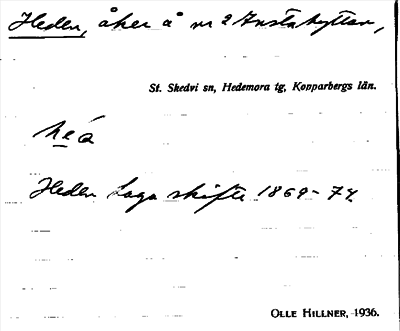 Heden, åker å nr 2 Anstahyttan,
St. Skedvi sn, Hedemora tg, Kopparbergs län.
Heden Laga skifte 1869-74
OLLE KILLNER, 1936.